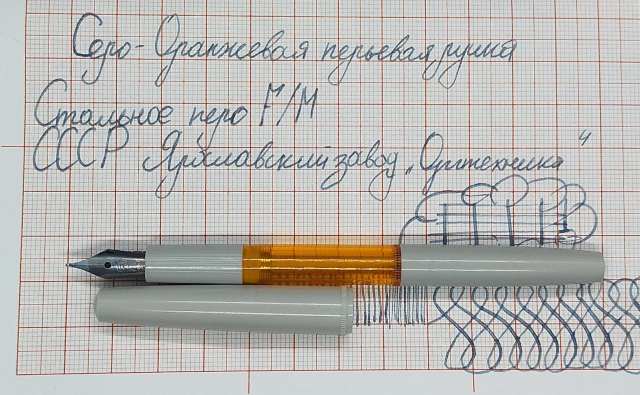 Серо-Оранжевая перьевая ручка
Стальное перо F/M
СССР Ярославский завод „Оргтехника"